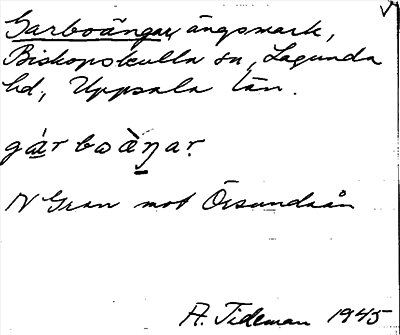 Garboängar, ängsmark,
Biskopskulla sn, Lagunda
hd, Uppsala län.
gár boàŋar.
N Gran mot Örsundaån
A. Tideman 1945